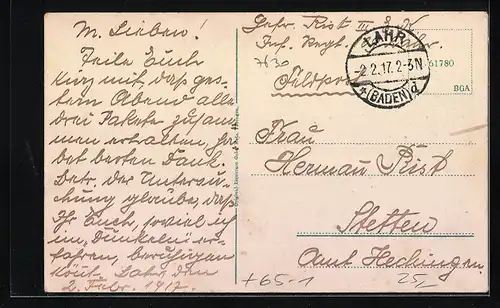 M. Lieben!
Teile Euch
kurz mit daß ges-
tern Abend alle
drei Pakete zusam-
men erhalten, ha-
bet besten Dank.
Betr. der Untersu-
chung glaube, daß
Ihr Euch, soviel ich
im Dunkeln er-
fahren, beruhigen
könnt. Lahr, den
2. Febr. 1917.
Gefr. Rist III
Inf. Regt.
Feldpost
LAHR
-2.2.17.2-3N
*(BADEN)d
61780
BGA
Frau
Herman Rist
Stetten
Amt Hechingen
+65-1
25,-